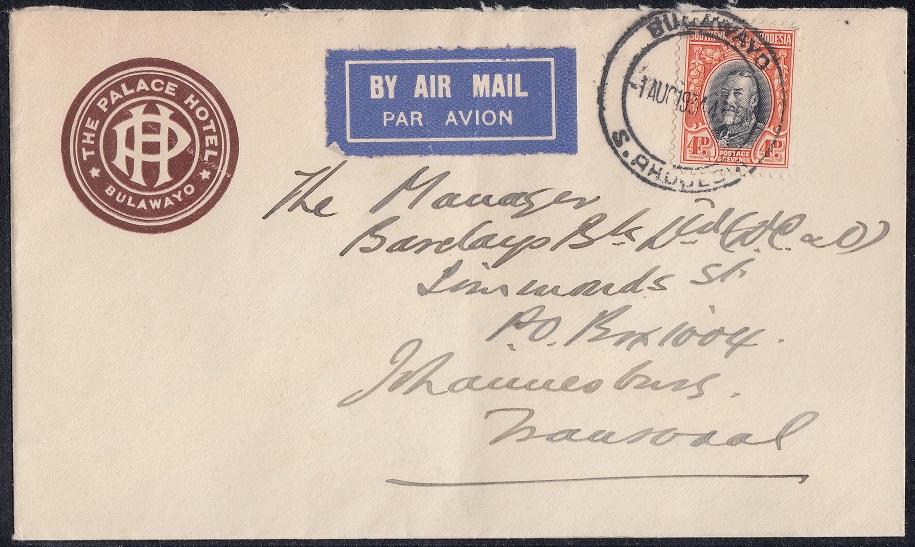 THE PALACE HOTEL
PH
★ BULAWAYO ★
BY AIR MAIL
PAR AVION
BULAWAYO
1 AUG 193
S. RHODESIA
SOUTHERN RHODESIA
4D. POSTAGE & REVENUE 4D.
The Manager
Barclays Bk Ltd (D.C. & O)
Simmonds St.
P.O. Box 1004.
Johannesburg.
Transvaal